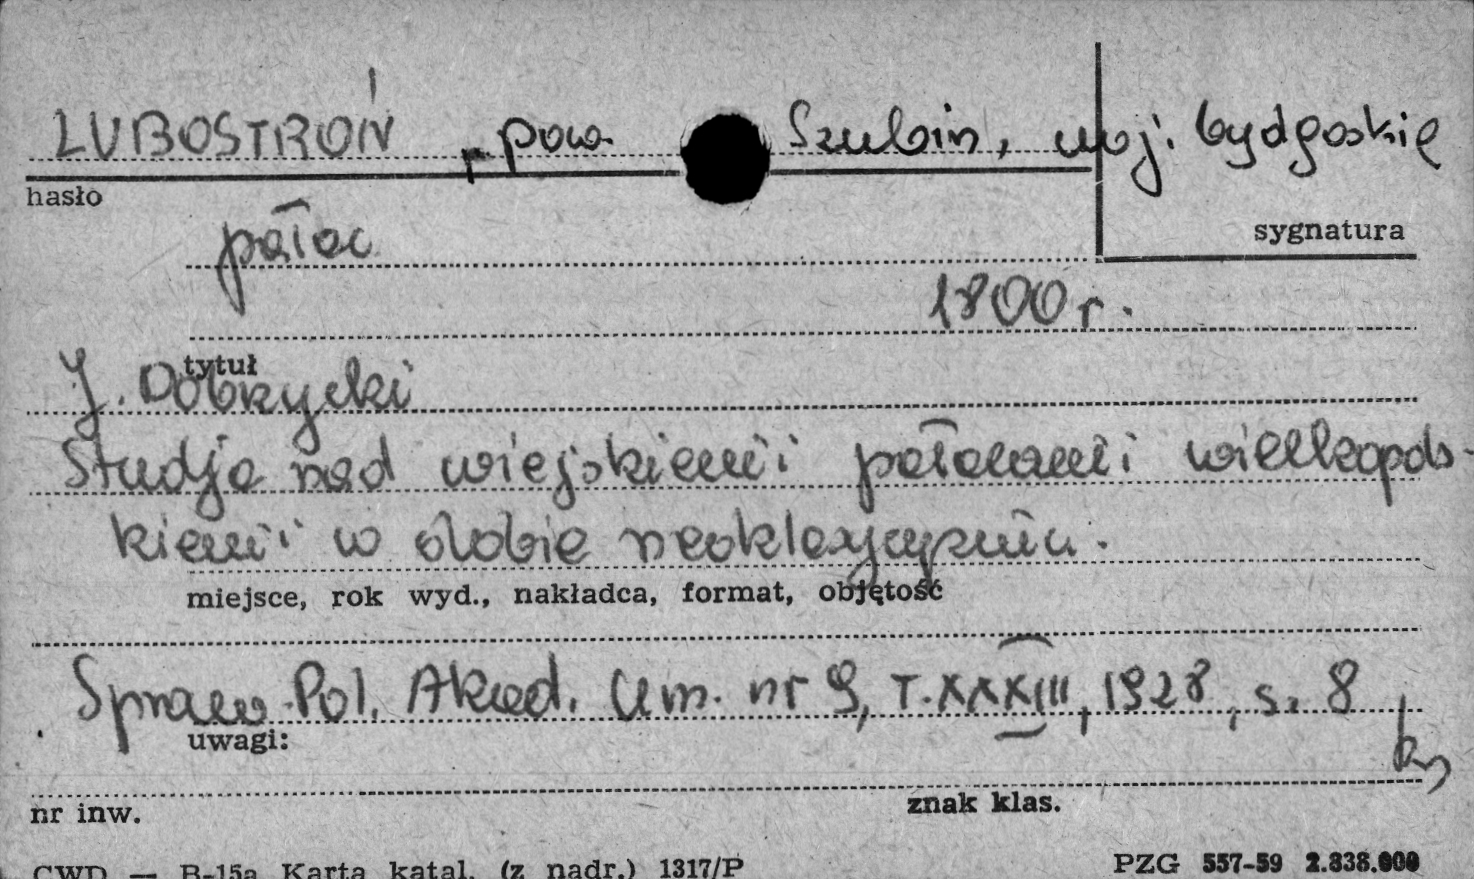 LUBOSTROŃ, pow. Szubin, woj. bydgoskie
hasło
pałac
sygnatura
1800 r.
tytuł
J. Dobrzycki
Studja nad wiejskiemi pałacami wielkopols-
kiemi w dobie neoklasycyzmu.
miejsce, rok wyd., nakładca, format, objętość
Spraw. Pol. Akad. Um. nr 9, T. XXXIII, 1928, s. 8
uwagi:
nr inw.
znak klas.
CWD — B-15a Karta katal. (z nadr.) 1317/P
PZG 557-59 2.838.000